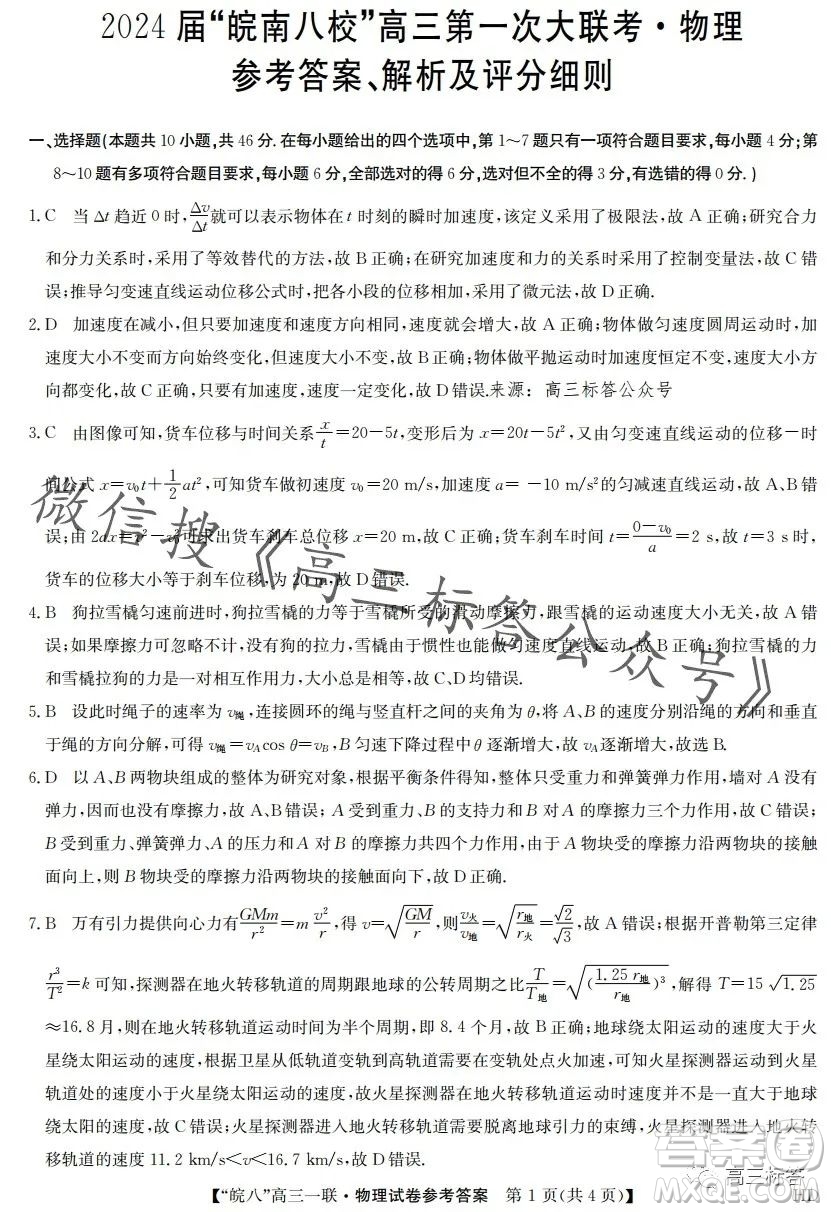 2024 届“皖南八校”高三第一次大联考·物理
参考答案、解析及评分细则
一、选择题(本题共 10 小题,共 46 分.在每小题给出的四个选项中,第 1～7 题只有一项符合题目要求,每小题 4 分;第
8～10 题有多项符合题目要求,每小题 6 分,全部选对的得 6 分,选对但不全的得 3 分,有选错的得 0 分.)
1.C 当 Δt 趋近 0 时,Δv/Δt就可以表示物体在 t 时刻的瞬时加速度,该定义采用了极限法,故 A 正确;研究合力
和分力关系时,采用了等效替代的方法,故 C 错误;在研究加速度和力的关系时采用了控制变量法,故 C 错
误;推导匀变速直线运动位移公式时,把各小段的位移相加,采用了微元法,故 D 正确.
2.D 加速度在减小,但只要加速度和速度方向相同,速度就会增大,故 A 正确;物体做匀速度圆周运动时,加
速度大小不变而方向始终变化,但速度大小不变,故 B 正确;物体做平抛运动时加速度恒定不变,速度大小方
向都变化,故 C 正确,只要有加速度,速度一定变化,故 D 错误.来源：高三标答公众号
3.C 由图像可知,货车位移与时间关系x/t=20－5t,变形后为 x=20t－5t²,又由匀变速直线运动的位移一时
间公式 x=v₀t+1/2at²,可知货车做初速度 v₀=20 m/s,加速度 a=－10 m/s²的匀减速直线运动,故 A、B 错
误;由 2ax=v²－v₀²可求出货车刹车总位移 x=20 m,故 C 正确;货车刹车时间 t=(0－v₀)/a=2 s,故 t=3 s 时,
货车的位移大小等于刹车位移,为 20 m,故 D 错误.
4.B 狗拉雪橇匀速前进时,狗拉雪橇的力等于雪橇所受的滑动摩擦力,跟雪橇的运动速度大小无关,故 A 错
误;如果摩擦力可忽略不计,没有狗的拉力,雪橇由于惯性也能做匀速度直线运动,故 B 正确;狗拉雪橇的力
和雪橇拉狗的力是一对相互作用力,大小总是相等,故 C、D 均错误.
5.B 设此时绳子的速率为 v绳,连接圆环的绳与竖直杆之间的夹角为 θ,将 A、B 的速度分别沿绳的方向和垂直
于绳的方向分解,可得 v绳=vAcos θ=vB,B 匀速下降过程中 θ 逐渐增大,故 vA逐渐增大,故选 B.
6.D 以 A、B 两物块组成的整体为研究对象,根据平衡条件得知,整体只受重力和弹簧弹力,墙对 A 没有
弹力,因而也没有摩擦力,故 A、B 错误;A 受到重力、B 的支持力和 B 的摩擦力三个力作用,故 C 错误;
B 受到重力、弹簧弹力、A 的压力和 A 对 B 的摩擦力共四个力作用,由于 A 物块受的摩擦力沿两物块的接触
面向上,则 B 物块受的摩擦力沿两物块的接触面向下,故 D 正确.
7.B 万有引力提供向心力有GMm/r²=m v²/r,得 v=√(GM/r),则v火/v地=√(r地/r火)=√2/√3,故 A 错误;根据开普勒第三定律
r³/T²=k 可知,探测器在地火转移轨道的周期跟地球的公转周期之比T/T地=√((1.25 r地/r地)³),解得 T=15 √1.25
≈16.8 月,则在地火转移轨道运动时间为半个周期,即 8.4 个月,故 B 正确;地球绕太阳运动的速度大于火
星绕太阳运动的速度,根据卫星从低轨道变轨到高轨道需要在变轨处点火加速,可知火星探测器在地火转移
轨道处的速度小于火星绕太阳运动的速度,故火星探测器在地火转移轨道运动时速度并不是一直大于地球
绕太阳的速度,故 C 错误;火星探测器进入地火转移轨道需要脱离地球引力的束缚,火星探测器进入地火转
移轨道的速度 11.2 km/s<v<16.7 km/s,故 D 错误.
【“皖八”高三一联·物理试卷参考答案 第 1 页(共 4 页)】
HD
微信搜《高三标答公众号》
答案圈
MXQE.COM
高三标答